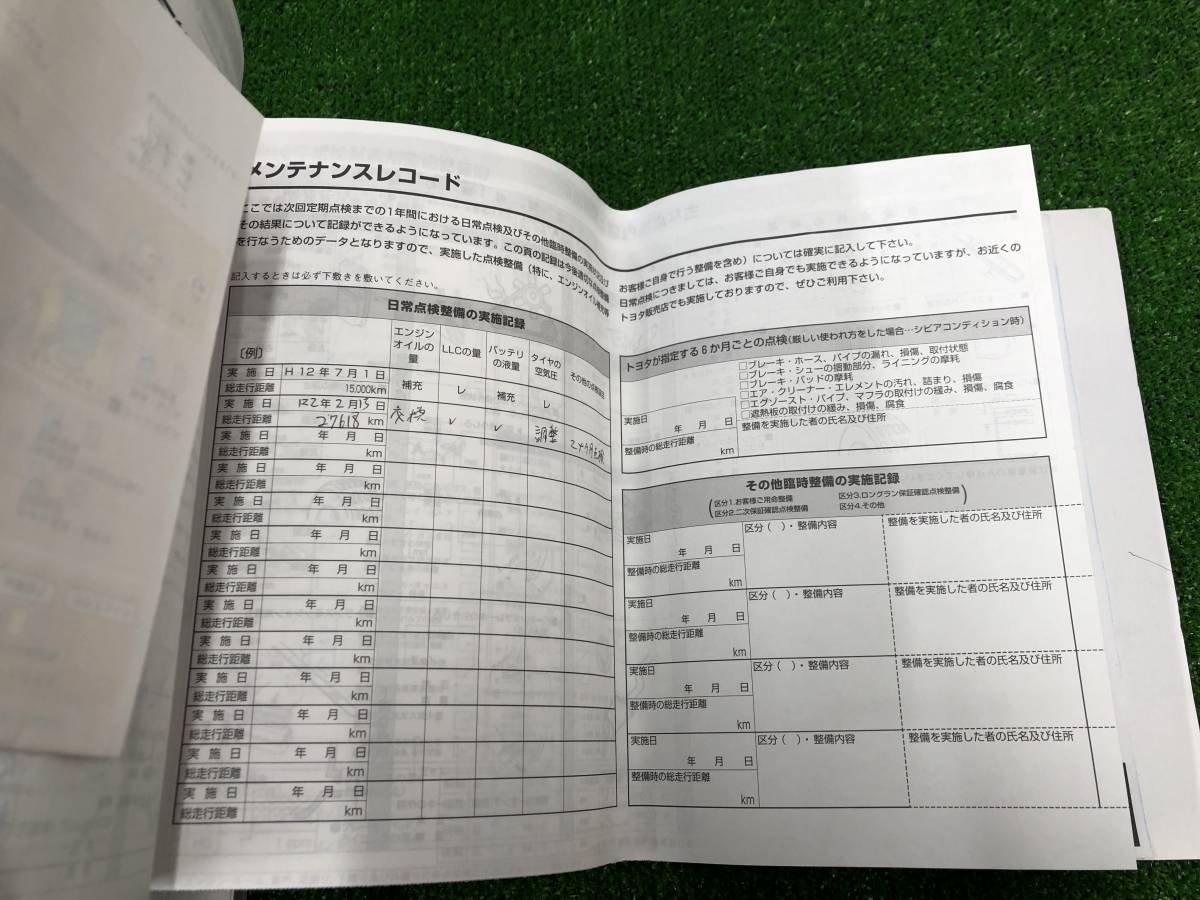 メンテナンスレコード
ここでは次回定期点検までの1年間における日常点検及びその他臨時整備の実施状況及び
その結果について記録ができるようになっています。この頁の記録は今後適切な点検整備
を行なうためのデータとなりますので、実施した点検整備（特に、エンジンオイル補充等
お客様ご自身で行う整備を含め）については確実に記入して下さい。
日常点検につきましては、お客様ご自身でも実施できるようになっていますが、お近くの
トヨタ販売店でも実施しておりますので、ぜひご利用下さい。
記入するときは必ず下敷きを敷いてください。
日常点検整備の実施記録
〔例〕 エンジンオイルの量 LLCの量 バッテリの液量 タイヤの空気圧 その他の点検項目
実施日 H12年7月1日 補充 レ 補充 レ
総走行距離 15,000km
実施日 R2年2月13日 交換 レ レ 調整 12ヶ月点検
総走行距離 27618 km
実施日 年 月 日
総走行距離 km
実施日 年 月 日
総走行距離 km
実施日 年 月 日
総走行距離 km
実施日 年 月 日
総走行距離 km
実施日 年 月 日
総走行距離 km
実施日 年 月 日
総走行距離 km
実施日 年 月 日
総走行距離 km
実施日 年 月 日
総走行距離 km
実施日 年 月 日
総走行距離 km
実施日 年 月 日
総走行距離 km
実施日 年 月 日
総走行距離 km
トヨタが指定する6か月ごとの点検（厳しい使われ方をした場合…シビアコンディション時）
□ブレーキ・ホース、パイプの漏れ、損傷、取付状態
□ブレーキ・シューの摺動部分、ライニングの摩耗
□ブレーキ・パッドの摩耗
□エア・クリーナー・エレメントの汚れ、詰まり、損傷
□エグゾースト・パイプ、マフラの取付けの緩み、損傷、腐食
□遮熱板の取付けの緩み、損傷、腐食
実施日
年 月 日
整備を実施した者の氏名及び住所
整備時の総走行距離
km
その他臨時整備の実施記録
（区分1.お客様ご用命整備 区分3.ロングラン保証確認点検整備
区分2.二次保証確認点検整備 区分4.その他）
実施日 区分（ ）・整備内容 整備を実施した者の氏名及び住所
年 月 日
整備時の総走行距離
km
実施日 区分（ ）・整備内容 整備を実施した者の氏名及び住所
年 月 日
整備時の総走行距離
km
実施日 区分（ ）・整備内容 整備を実施した者の氏名及び住所
年 月 日
整備時の総走行距離
km
実施日 区分（ ）・整備内容 整備を実施した者の氏名及び住所
年 月 日
整備時の総走行距離
km